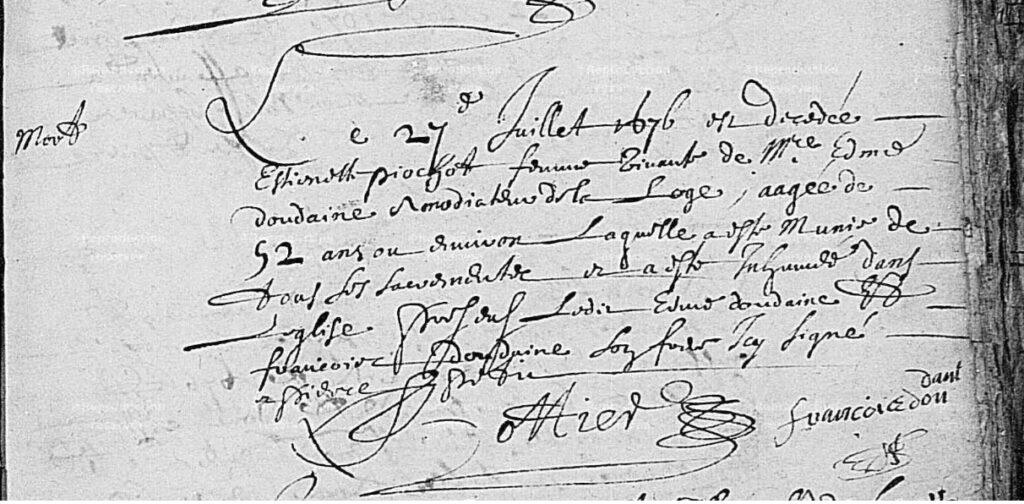 Mort
Le 27e Juillet 1676 est decedée
Estienette piochot femme vivante de Mre Edme
doudaine Amodiateur de la Loge, aagée de
52 ans ou environ Laquelle a esté Munie de
tous ses sacrementz et a esté Inhumée dans
Leglise presens Ledit Edme doudaine
francois doudaine son frere Icy signé
et pierre
francois dou
dant